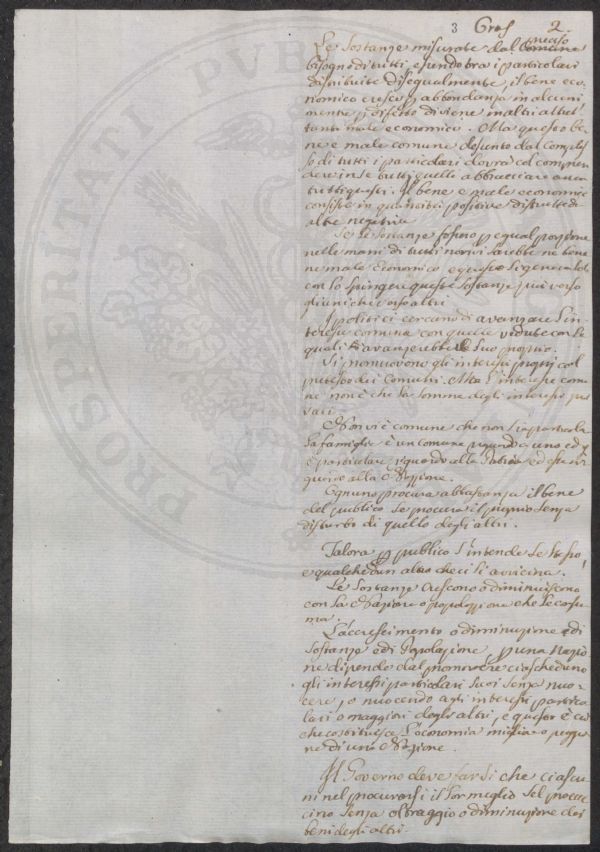 3 Gras 2
Le Sostanze misurate dal preciso
bisogno di tutti, essendo tra i particolari
distribuite disegualmente, il bene eco-
nomico cresce p abbondanza in alcuni
mentre p difetto diviene in altri altret
tanto male economico. Ma questo be
ne e male comune desunto dal comples
so di tutti i particolari dovrà col compren
dere in se tutti quelli abbracciare anca
tutti questi. Il bene e male economico
consiste in quantità positive distrutte da
altre negative
Se le sostanze fossero p egual porzione
nelle mani di tutti non vi sarebbe ne bene
ne male economico e questo si genera
con lo spingere queste sostanze piu verso
gli uni che verso altri
I politici cercano di avanzare l'in
teresse comune con quelle vedute con le
quali si avanzerebbe il suo proprio.
Si promuovono gli interessi proprj col
pretesto dei comuni. Ma l'interesse comu
ne non è che la somma degli interessi pri
vati
Non vi è comune che non sia particolare
La famiglia è un comune riguardo a uno ed
è particolare riguardo alla Patria ed essa ri
guardo alla Nazione.
Ognuno procura abbastanza il bene
del publico se procura il proprio senza
disturbo di quello degli altri.
Talora p publico s'intende se stesso,
e qualchedun altro che ci si avvicina.
Le Sostanze crescono o diminuiscono
con la Nazione o popolazione che le consu
ma.
L'accrescimento o diminuzione di
sostanze e di Popolazione p una Nazio
ne dipende dal promovere ciascheduno
gli interessi particolari suoi senza nuo
cere, o nuocendo agli interessi partico
lari o maggiori degli altri, e questo è ciò
che costituisce l'economia migliore o peggio
re di una Nazione.
Il Governo deve far sì che ciascu
ni nel procurarsi il suo meglio sel procac
cino senza oltraggio o diminuzione dei
beni degli altri.
PROSPERITATI PUBLICAE